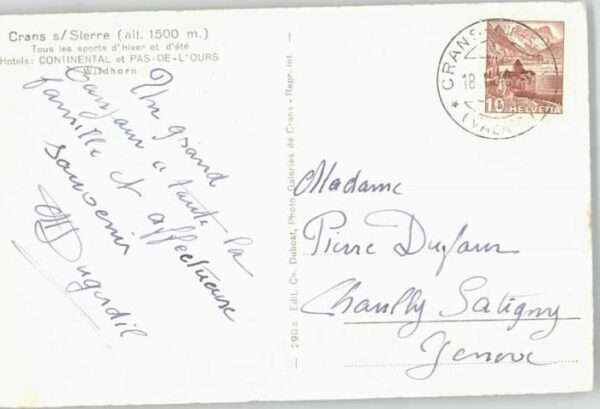 Crans s/Sierre (alt. 1500 m.)
Tous les sports d'hiver et d'été
Hotels: CONTINENTAL et PAS-DE-L'OURS
Wildhorn
Un grand
bonjour a toute la
famille et affectueuse
souvenir
290a Edit. Ch. Dubost, Photo Galeries de Crans - Repr. int.
CRANS
18
10 HELVETIA
Madame
Pierre Dufour
Satigny
Geneve